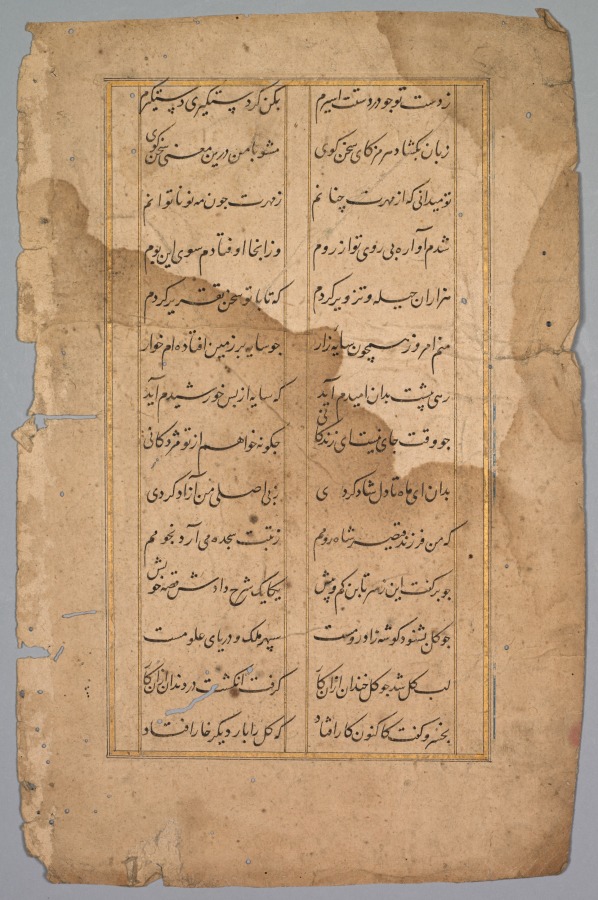 ز دست تو جو در دستت اسیرم بکن کرد پستکیری دپستکیرم
زبان بکشاد هرمز کای سخن کوی مشو با من درین معنی سخن کوی
تو میدانی که از مهرت چنانم ز مهرت جون مه نو ناتوانم
شدم آواره بی روی تو از روم وز انجا اوفتادم سوی این بوم
هزاران حیله و تزویر کردم که تا با تو سخن تقریر کردم
منم امروز همچون سایه زار جو سایه بر زمین افتاده ام خوار
رهی پشت بدان امیدم آید که سایه از پس خورشیدم آید
جو وقت جای نیست ای زندکانی جکونه خواهم از تو مژدکانی
بدان ای ماه تا دل شاد کردی ز بی اصلی من آزاد کردی
که من فرزند قیصر شاه رومم ز پیت سجده می آرد نجومم
جو برکفت این ز سر تا بن کم و بیش یکایک شرح دادش قصه خویش
جو کل بشنود کوشه زاور ومست سپهر ملک و دریای علومست
لب کل شد جو کل خندان ازان کار کرفت انکشت در دندان ازان کار
بخسرو کفت کاکنون کار افتاد که کل را بار دیکر خار افتاد